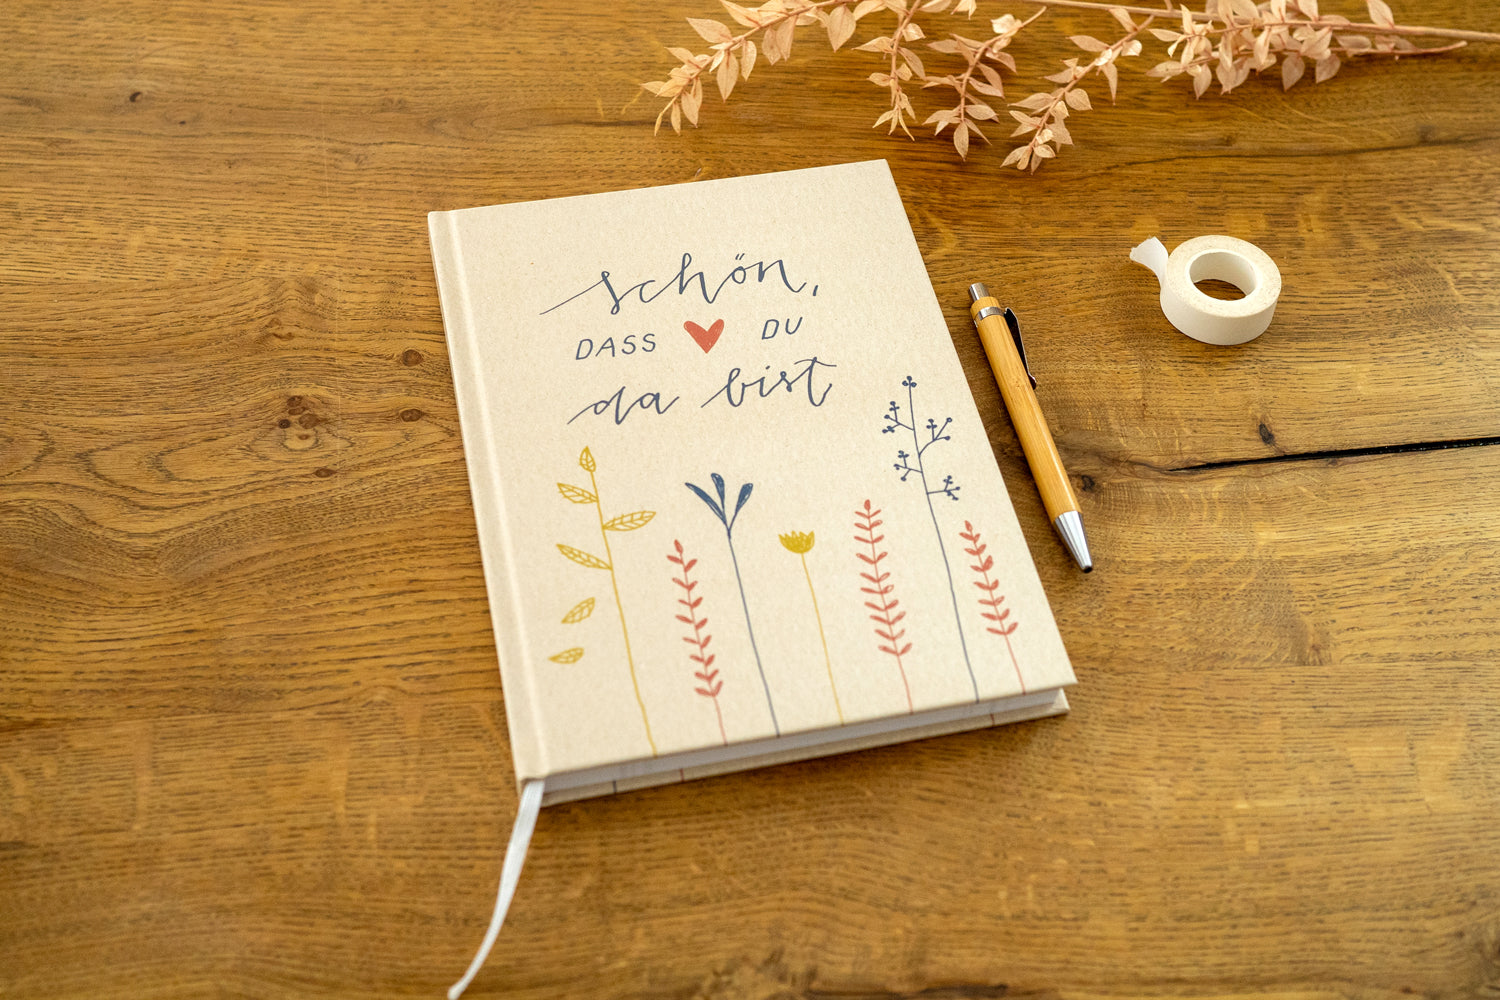 schön,
DASS DU
da bist